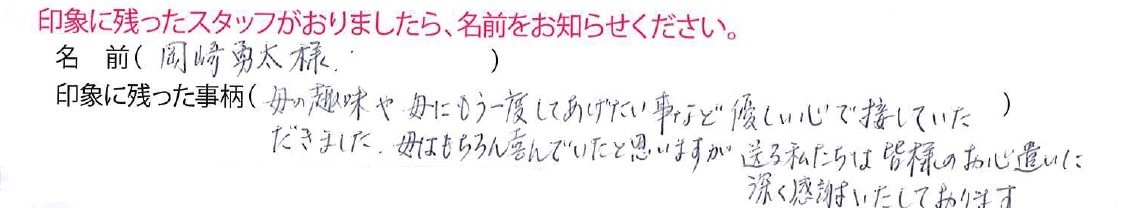 印象に残ったスタッフがおりましたら、名前をお知らせください。
名　前( 岡崎勇太様. )
印象に残った事柄( 母の趣味や母にもう一度してあげたい事など優しい心で接していた )
だきました. 母はもちろん喜んでいたと思いますが 送る私たちは皆様のお心遣いに
深く感謝いたしております